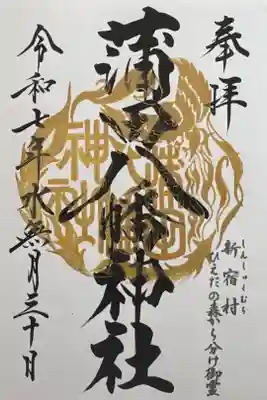 奉拝
しんしゅくむら
新宿村
ひえだの森から分け御霊
蒲田八幡神社
令和七年水無月三十日